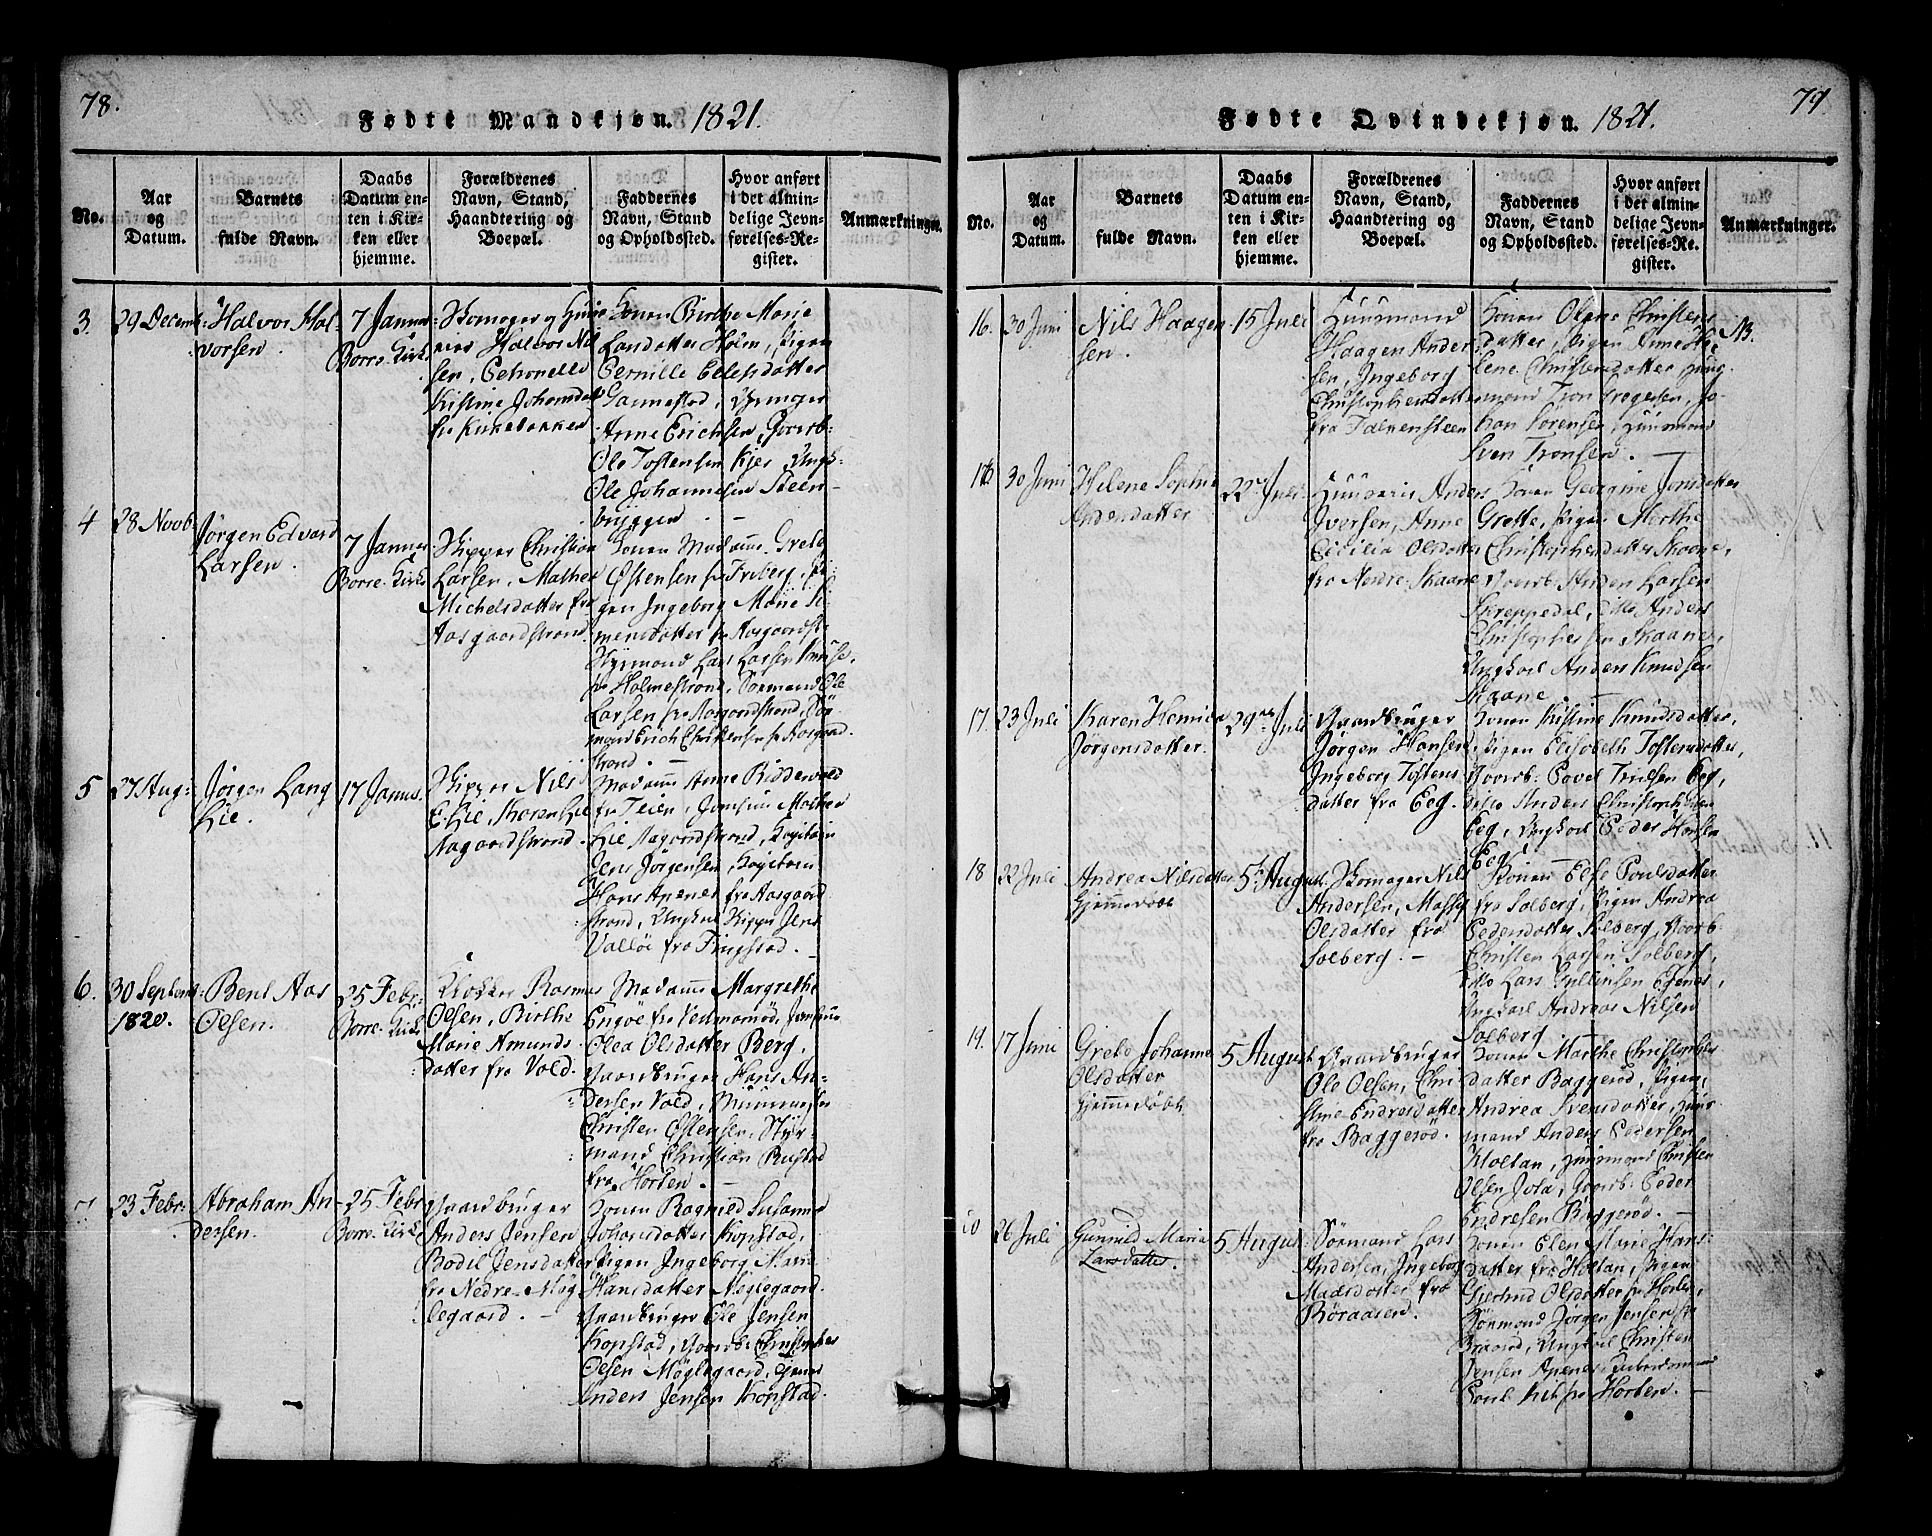 78.
Fødte Mandkjøn. 1821.
No.
Aar og Datum.
Barnets fulde Navn.
Daabs Datum enten i Kirken eller hjemme.
Forældrenes Navn, Stand, Haandtering og Boepæl.
Faddernes Navn, Stand og Opholdssted.
Hvor anført i det almindelige Jevnførelses-Register.
Anmærkninger.
3.
29 Decemb:
Halvor Hal-
vorsen.
7 Januar
Borre-Kirk
Halvor Nil
sen, Petronelle
Kistine Johansdat
fra Kirkebakken
Konen Birthe Marie
Larsdatter Holm, Pigen
Pernille Ellefsdatter
Gannestad,
Anne Erichsen, Gaardb.
Ole Tostensen Kjer, Ungk:
Ole Johannesen Steen-
bryggen
4
28 Novb:
Jørgen Edvard
Larsen.
7 Januar
Borre-Kirk
Skipper Christian
Larsen, Mathea
Michelsdatter fra
Aasgaardstrand.
Konen Madame Grebo
Østensen fra Freberg, Pi-
gen Ingeborg Marie Si-
mensdatter fra Aasgaardst.
Styrmand Lars Larsen
fra Holmestrand, Sørmand Ole
Larsen fra Aasgaardstrand, Sør
mand Erich Christensen fra Aasgaard
strand. —
5
27 Aug:
Jørgen Lang
Lie.
17 Januar.
Skipper Nils
E. Lie, Maren Lie
Aasgaardstrand.
Madame Anne Bidderwald
fra Teien, Jomfru Mathea
Lie Aasgaardstrand, Kapitain
Jens Jørgensen, Kapitain
Hans Apenes fra Aasgaard
strand, Ungkarl Skipper Jens
Valløe fra Tingstad. —
6.
30 Septemb:
1820.
Bent Aas
Olsen.
25 Febr:
Borre-Kirk
Klokker Rasmus
Olsen, Birthe
Marie Amunds
datter fra Vold.
Madame Margrethe
Engøe fra Vedmarød, Jomfrue
Olea Olsdatter Berg,
Gaardbruger Hans An-
dersen Vold,
Christen Østensen, Styr-
mand Christian Bustad
fra Horten. —
7
23 Febr:
Abraham An-
dersen.
25 Febr
Borre-Kirk
Gaardbruger
Anders Jensen
Bodil Jensdatter
fra Nedre-Møg
legaard. —
Konen Ragnild Susanne
Johansdatter Kopstad,
Pigen Ingeborg Marie
Hansdatter Møglegaard.
Gaardbruger Ole Jensen
Kopstad, Gaardb: Christopher
Olsen Møglegaard,
Anders Jensen Kopstad.
79
Fødte Qvindekjøn. 1821.
No.
Aar og Datum.
Barnets fulde Navn.
Daabs Datum enten i Kirken eller hjemme.
Forældrenes Navn, Stand, Haandtering og Boepæl.
Faddernes Navn, Stand og Opholdssted.
Hvor anført i det almindelige Jevnførelses-Register.
Anmærkninger.
16.
30 Juni
Nils Haagen
sen.
15 Juli
Huusmand
Haagen Ander
sen, Ingeborg
Christophersdatter
fra Falkensteen
Konen Olene Christens
datter, Pigen Anne He
lene Christensdatter, Huus
mand Tron Gregersen, Jo-
han Sørensen, Huusmand
Sven Tronsen. —
NB.
16
30 Juni
Helene Sophie
Andersdatter
22de Juli
Anders
Iversen, Anne
Cicilia Olsdatter
fra Nordre-Skaane
Konen Georgine Jensdatter
Grette, Pigen Marthe
Christophersdatter Skaane,
Gaardb. Anders Larsen
Skreppedal, dito Anders
Christophersen Skaane,
Ungkarl Anders Knudsen
Skaane. —
17.
23 Juli
Karen Hemica
Jørgensdatter.
29de Juli
Gaardbruger
Jørgen Hansen
Ingeborg Tostens
datter fra Eeg.
Konen Kistine Knudsdatter,
Pigen Elisabeth Tostensdatter,
Gaardb: Povel Truelsen Eeg,
dito Anders Christophersen
Eeg, Ungkarl Peder Hansen
Eeg —
18
22 Juli
Andrea Nilsdatter
Hjemmedøbt
5 August.
Skomager Nils
Andersen, Massy
Olsdatter fra
Solberg. —
Konen Else Poulsdatter
fra Solberg, Pigen Andrea
Pedersdatter Solberg, Gaardb.
Christen Larsen Solberg,
dito Lars Gullixsen Egenes,
Ungkarl Andreas Nilsen
Solberg —
19.
17 Juni
Grebo Johanne
Olsdatter
Hjemmedøbt
5 August
Gaardbruger
Ole Olsen, Chri
stine Endresdatter
fra Baggerød.
Konen Marthe Christophers
datter Baggerød, Pigen
Andrea Svensdatter, Huus
mand Anders Pedersen
Holtan, Huusmand Christen
Olsen Jola, Gaardb: Peder
Endresen Baggerød. —
20
26 Juli
Gunnild Maria
Larsdatter.
5 August:
Sørmand Lars
Andersen, Ingeborg
Madsdatter fra
Røraasen.
Konen Elen Marie Hans
datter fra Holtan, Pigen
Gjertrud Olsdatter fra Horten,
Sørmand Jørgen Jensen fra
Braarød, Ungkarl Christen
Jensen Apenes,
fra Horten. —